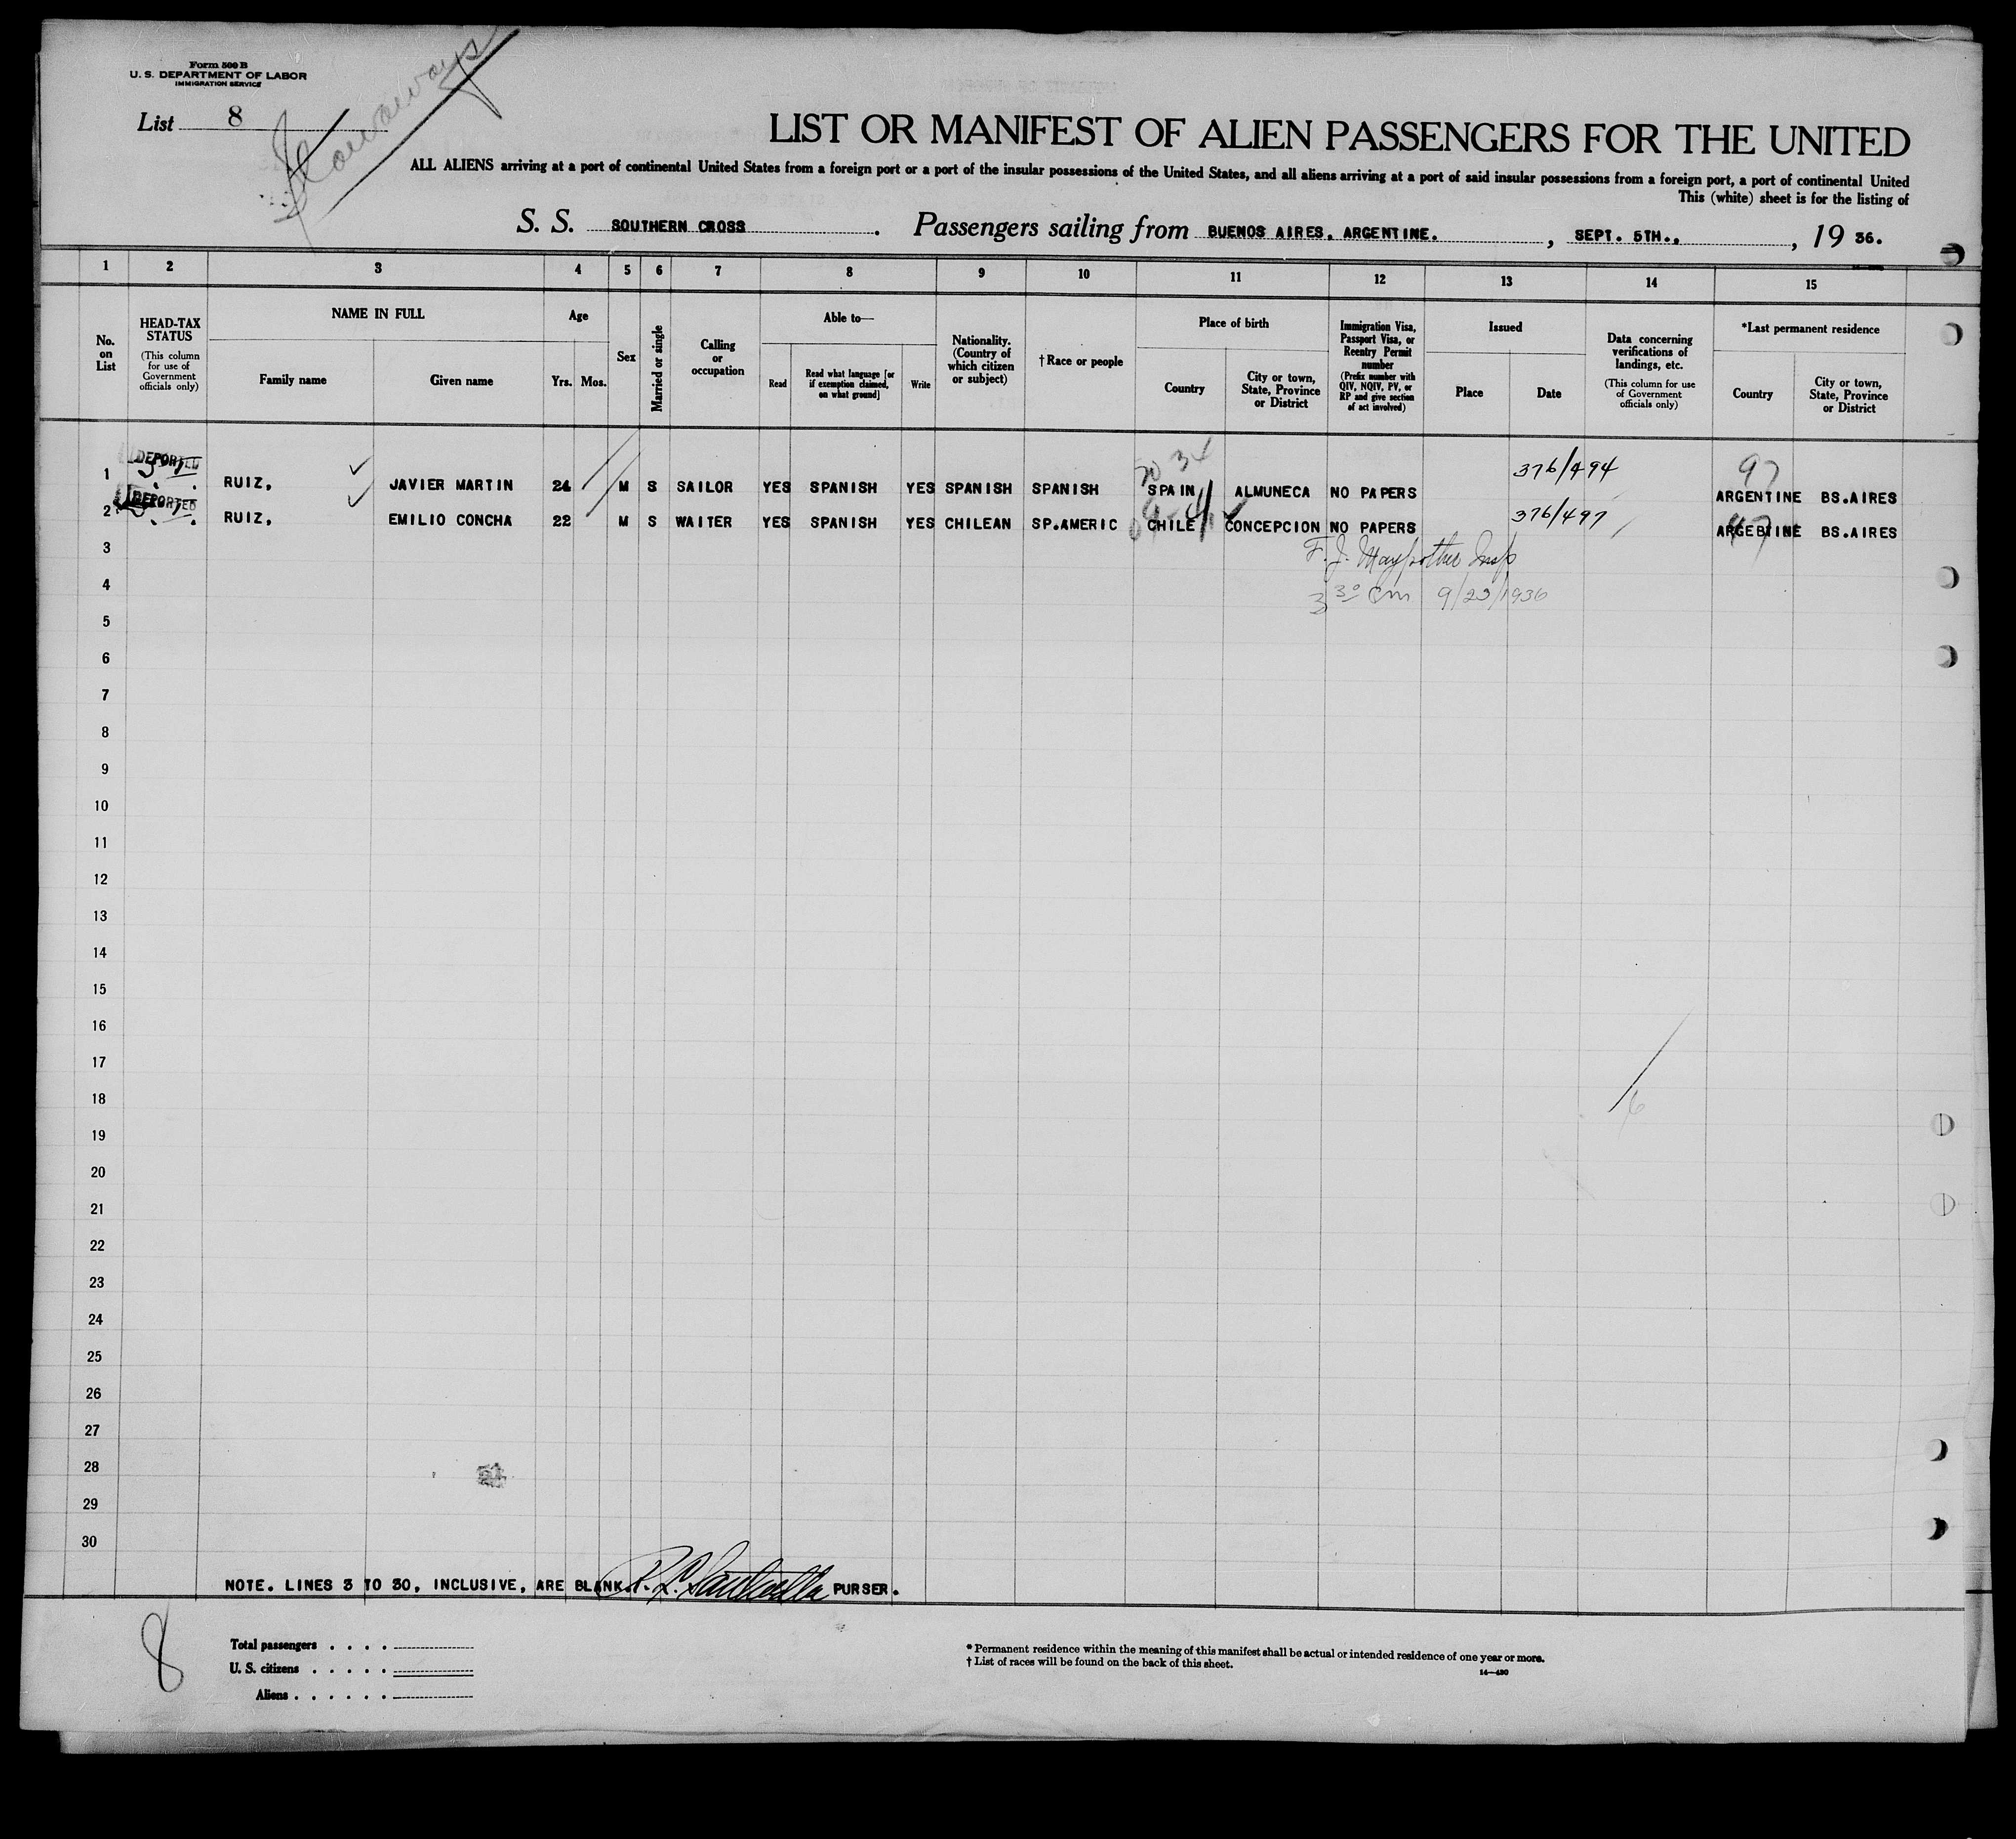 Form 500 B
U. S. DEPARTMENT OF LABOR
IMMIGRATION SERVICE
List 8
Stowaways
LIST OR MANIFEST OF ALIEN PASSENGERS FOR THE UNITED
ALL ALIENS arriving at a port of continental United States from a foreign port or a port of the insular possessions of the United States, and all aliens arriving at a port of said insular possessions from a foreign port, a port of continental United
This (white) sheet is for the listing of
S. S. SOUTHERN CROSS. Passengers sailing from BUENOS AIRES, ARGENTINE., SEPT. 5TH., , 19 36.
1 2 3 4 5 6 7 8 9 10 11 12 13 14 15
No. on List
HEAD-TAX STATUS
(This column for use of Government officials only)
NAME IN FULL
Family name
Given name
Age
Yrs. Mos.
Sex
Married or single
Calling or occupation
Able to—
Read
Read what language [or if exemption claimed, on what ground]
Write
Nationality. (Country of which citizen or subject)
†Race or people
Place of birth
Country
City or town, State, Province or District
Immigration Visa, Passport Visa, or Reentry Permit number
(Prefix number with QIV, NQIV, PV, or RP and give section of act involved)
Issued
Place
Date
Data concerning verifications of landings, etc.
(This column for use of Government officials only)
*Last permanent residence
Country
City or town, State, Province or District
DEPORTED
34 376/494 97
1 RUIZ, JAVIER MARTIN 24 M S SAILOR YES SPANISH YES SPANISH SPANISH SPAIN ALMUNECA NO PAPERS ARGENTINE BS.AIRES
DEPORTED
376/497
2 RUIZ, EMILIO CONCHA 22 M S WAITER YES SPANISH YES CHILEAN SP.AMERIC CHILE CONCEPCION NO PAPERS ARGEBTINE BS.AIRES
3 F. J. Insp
4 9/23/1936
5
6
7
8
9
10
11
12
13
14
15
16
17
18
19
20
21
22
23
24
25
26
27
28
29
30
NOTE. LINES 3 TO 30, INCLUSIVE, ARE BLANK. PURSER.
8
Total passengers . . . .
U. S. citizens . . . . .
Aliens . . . . . .
* Permanent residence within the meaning of this manifest shall be actual or intended residence of one year or more.
† List of races will be found on the back of this sheet.
14—430